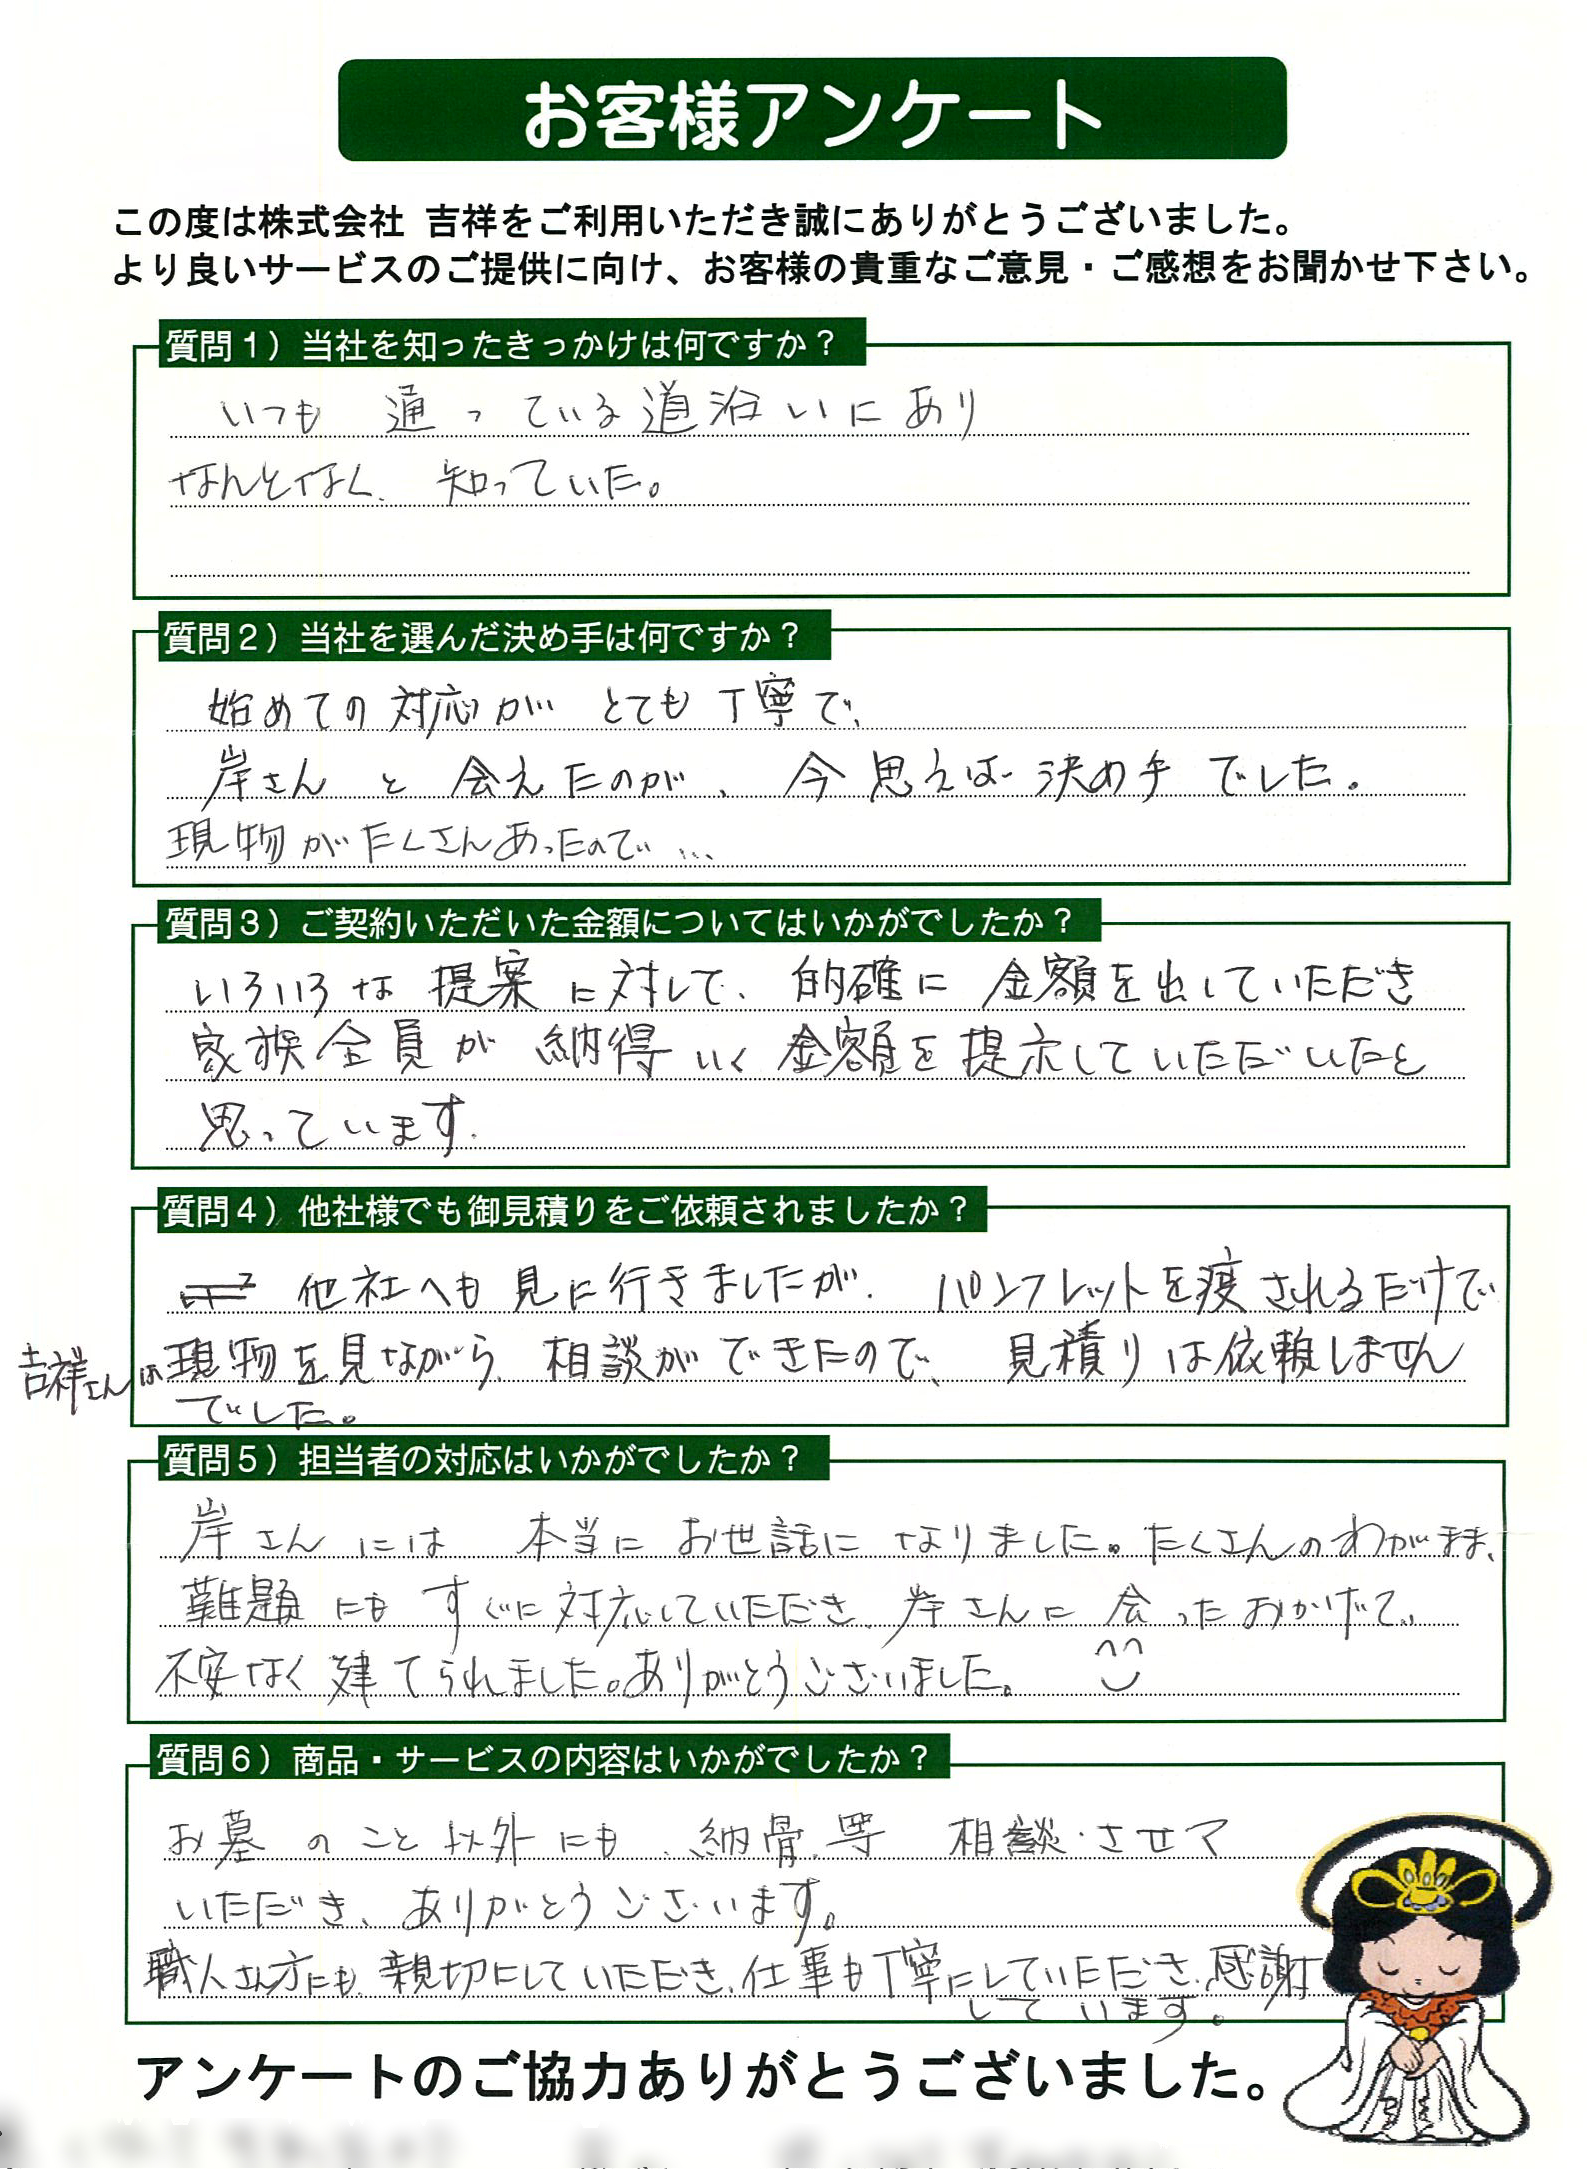 お客様アンケート
この度は株式会社 吉祥をご利用いただき誠にありがとうございました。
より良いサービスのご提供に向け、お客様の貴重なご意見・ご感想をお聞かせ下さい。
質問1）当社を知ったきっかけは何ですか？
いつも 通っている道沿いにあり
なんとなく、知っていた。
質問2）当社を選んだ決め手は何ですか？
始めての対応が とても丁寧で、
岸さんと会えたのが、今思えば決め手でした。
現物がたくさんあったので…
質問3）ご契約いただいた金額についてはいかがでしたか？
いろいろな提案に対して、的確に金額を出していただき
家族全員が納得いく金額を提示していただいたと
思っています。
質問4）他社様でも御見積りをご依頼されましたか？
他社へも見に行きましたが、パンフレットを渡されるだけで
吉祥さんは現物を見ながら、相談ができたので、見積りは依頼しません
でした。
質問5）担当者の対応はいかがでしたか？
岸さんには 本当にお世話になりました。たくさんのわがまま、
難題にもすぐに対応していただき、岸さんに会ったおかげで、
不安なく建てられました。ありがとうございました。
質問6）商品・サービスの内容はいかがでしたか？
お墓のこと以外にも、納骨、等 相談させて
いただき、ありがとうございます。
職人さん方にも、親切にしていただき、仕事も丁寧にしていただき、感謝
しています。
アンケートのご協力ありがとうございました。